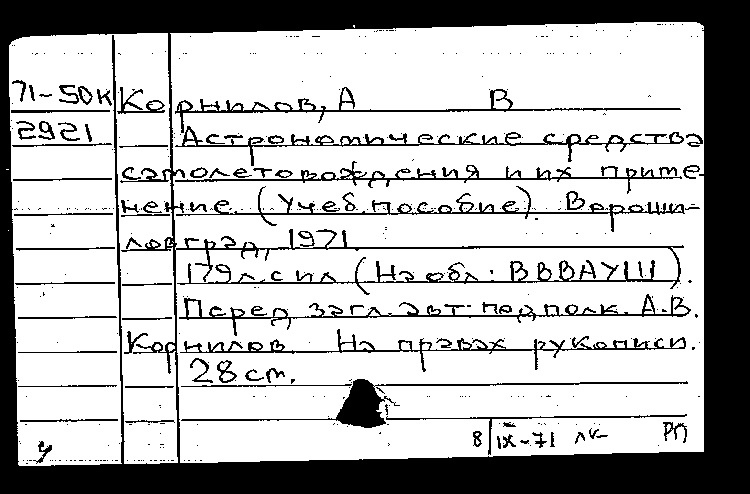 71-50к Корнилов, А В
2921 Астрономические средства
самолетовождения и их приме-
нение. (Учеб. пособие). Вороши-
ловград, 1971.
179 л. с ил (На обл.: ВВВАУШ).
Перед загл. авт.: подполк. А.В.
Корнилов. На правах рукописи.
28 cm.
8/IX-71 РП